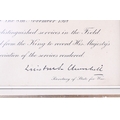 distinguished services in the Field
from the King to record His Majesty's
of the services rendered.
Winston S. Churchill
Secretary of State for War